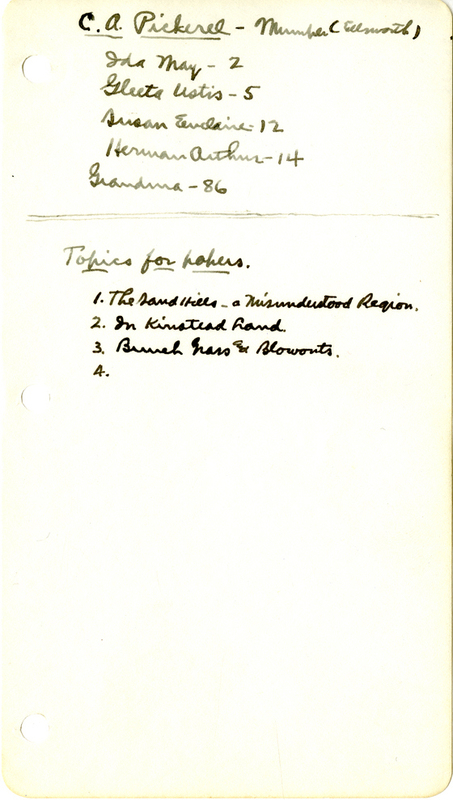 C. A. Pickerel - Mumper (Ellsworth)
Ida May - 2
Gleeta Ustis - 5
Susan Evelaine - 12
Herman Arthur - 14
Grandma - 86
Topics for papers.
1. The Sand Hills - a Misunderstood Region.
2. In Kinstead Land.
3. Bunch Grass & Blowouts.
4.